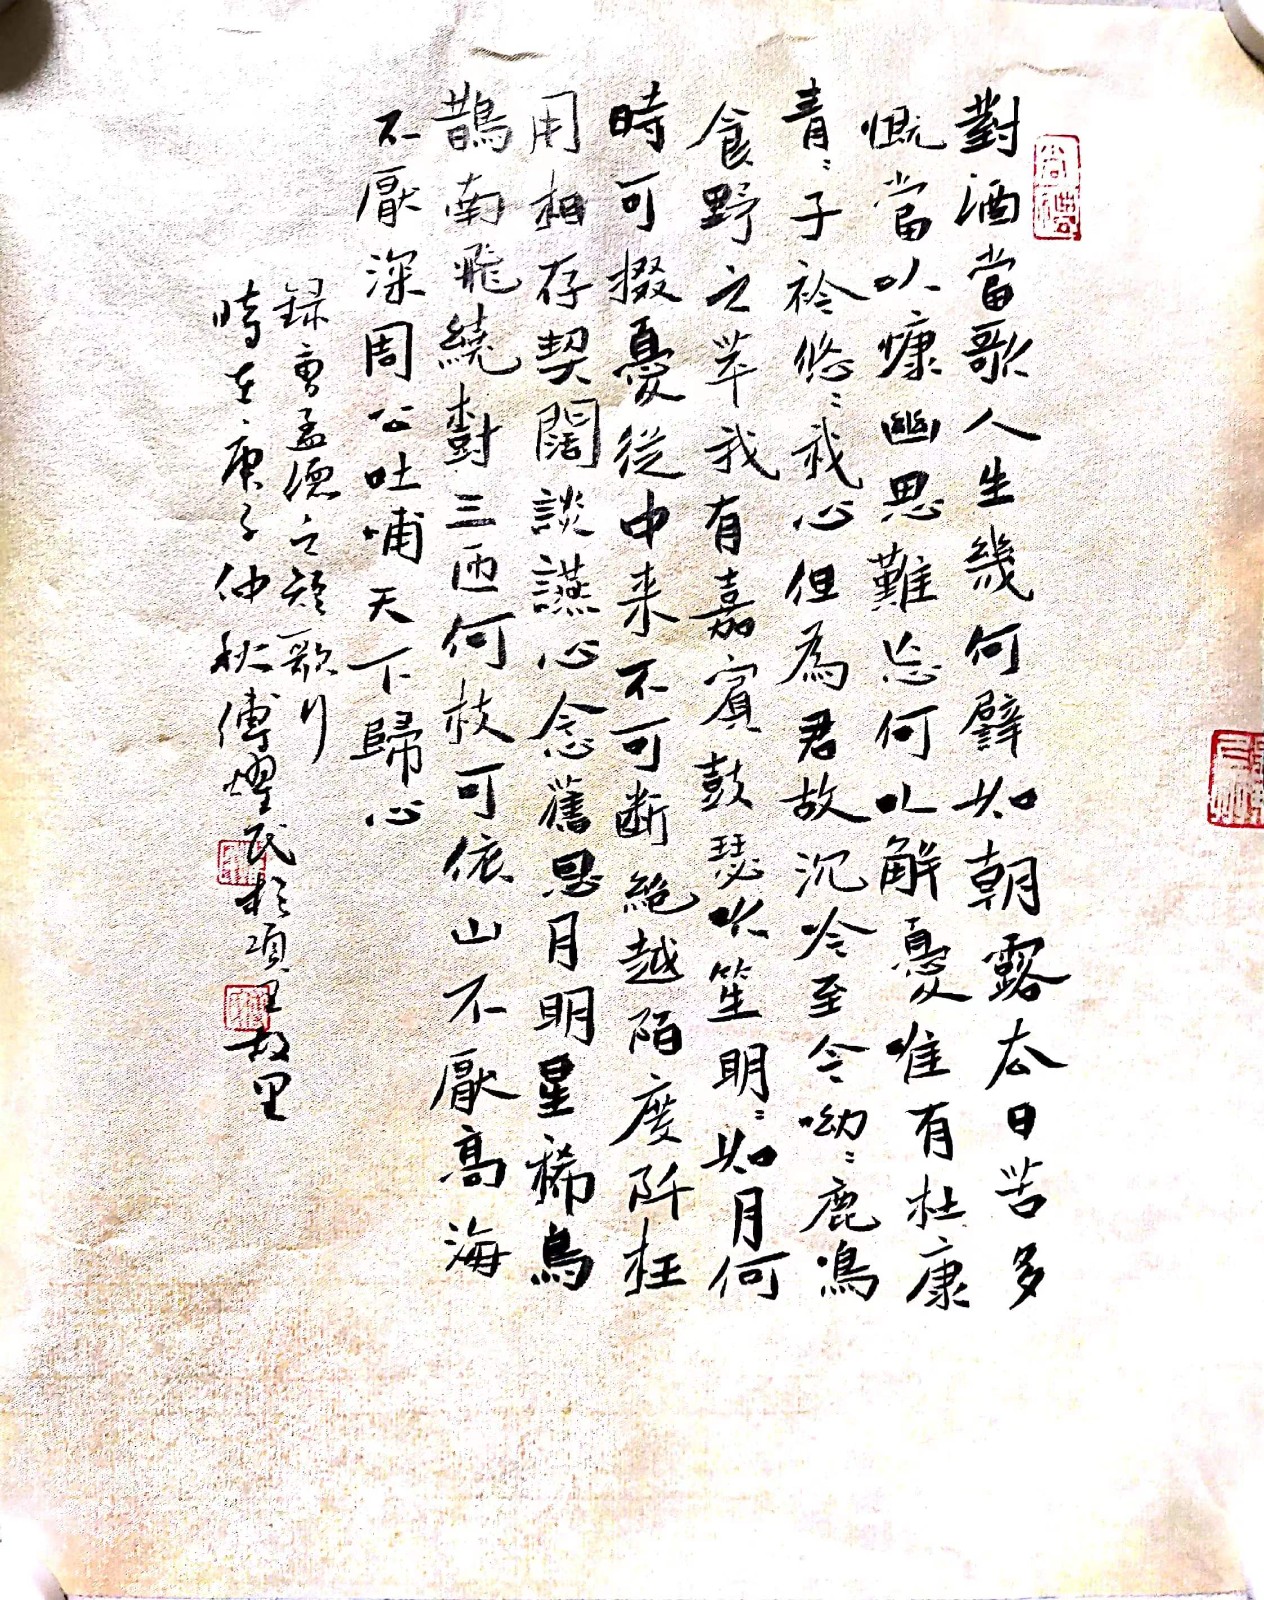 對酒當歌人生幾何譬如朝露厺日苦多
慨當以慷幽思難忘何以解憂唯有杜康
青〻子衿悠〻我心但為君故沉吟至今呦〻鹿鳴
食野之苹我有嘉賓鼓瑟吹笙明〻如月何
時可掇憂從中来不可断絶越陌度阡枉
用相存契闊談讌心念舊恩月明星稀烏
鵲南飛繞樹三匝何枝可依山不厭高海
不厭深周公吐哺天下歸心
録曹孟德之短歌行
時在庚子仲秋傅耀民於項王故里